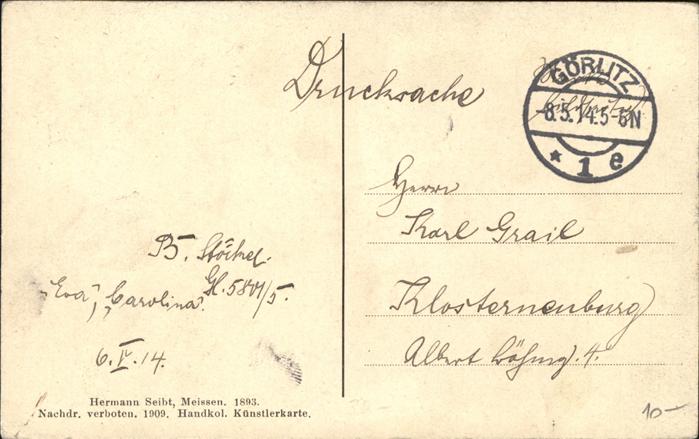 Drucksache
GÖRLITZ
-8.5.14.5-6N
* 1 e
Herrn
Karl Grail
Klosterneuburg
Albert Böhmg. 4.
B. Stöckel.
Gl. 5801/5.
"Eva", "Carolina".
6.V.14.
Hermann Seibt, Meissen. 1893.
Nachdr. verboten. 1909. Handkol. Künstlerkarte.
10-